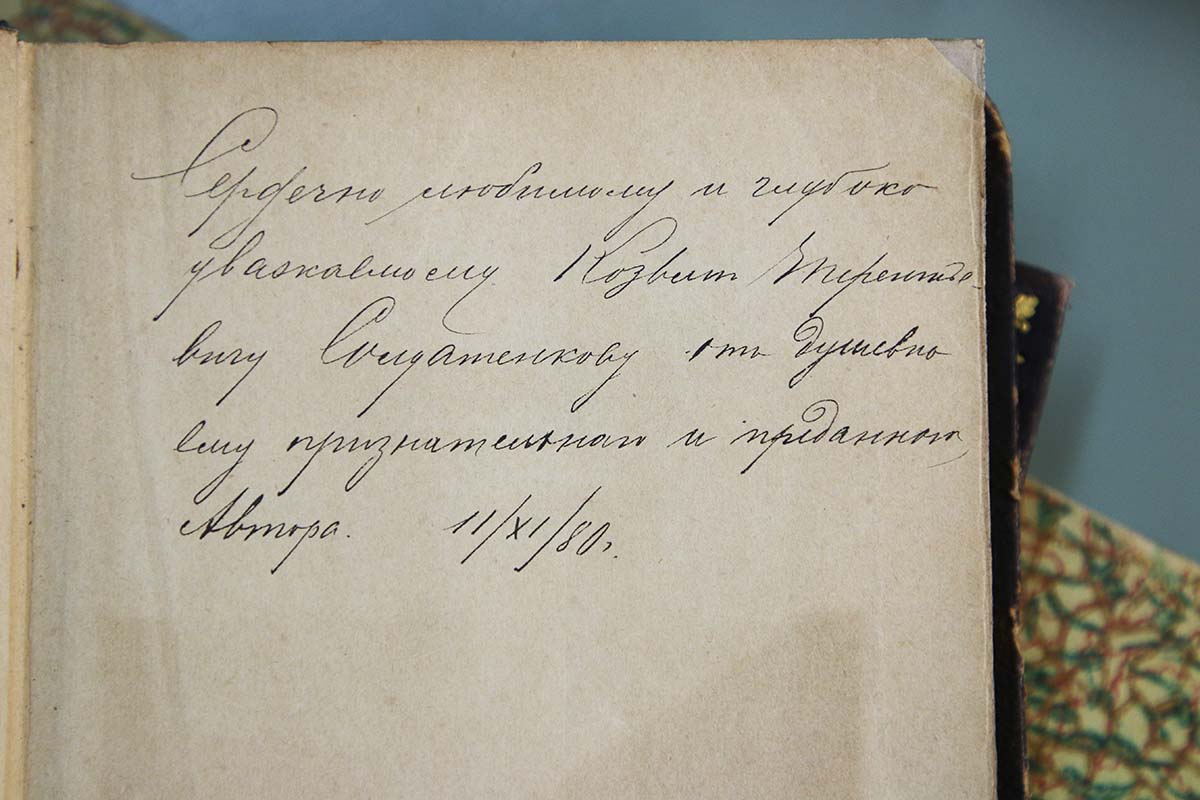 Сердечно любимому и глубоко
уважаемому Козьмѣ Терентье-
вичу Солдатенкову отъ душевно
ему признательнаго и преданнаго
Автора. 11/XI/80 г.